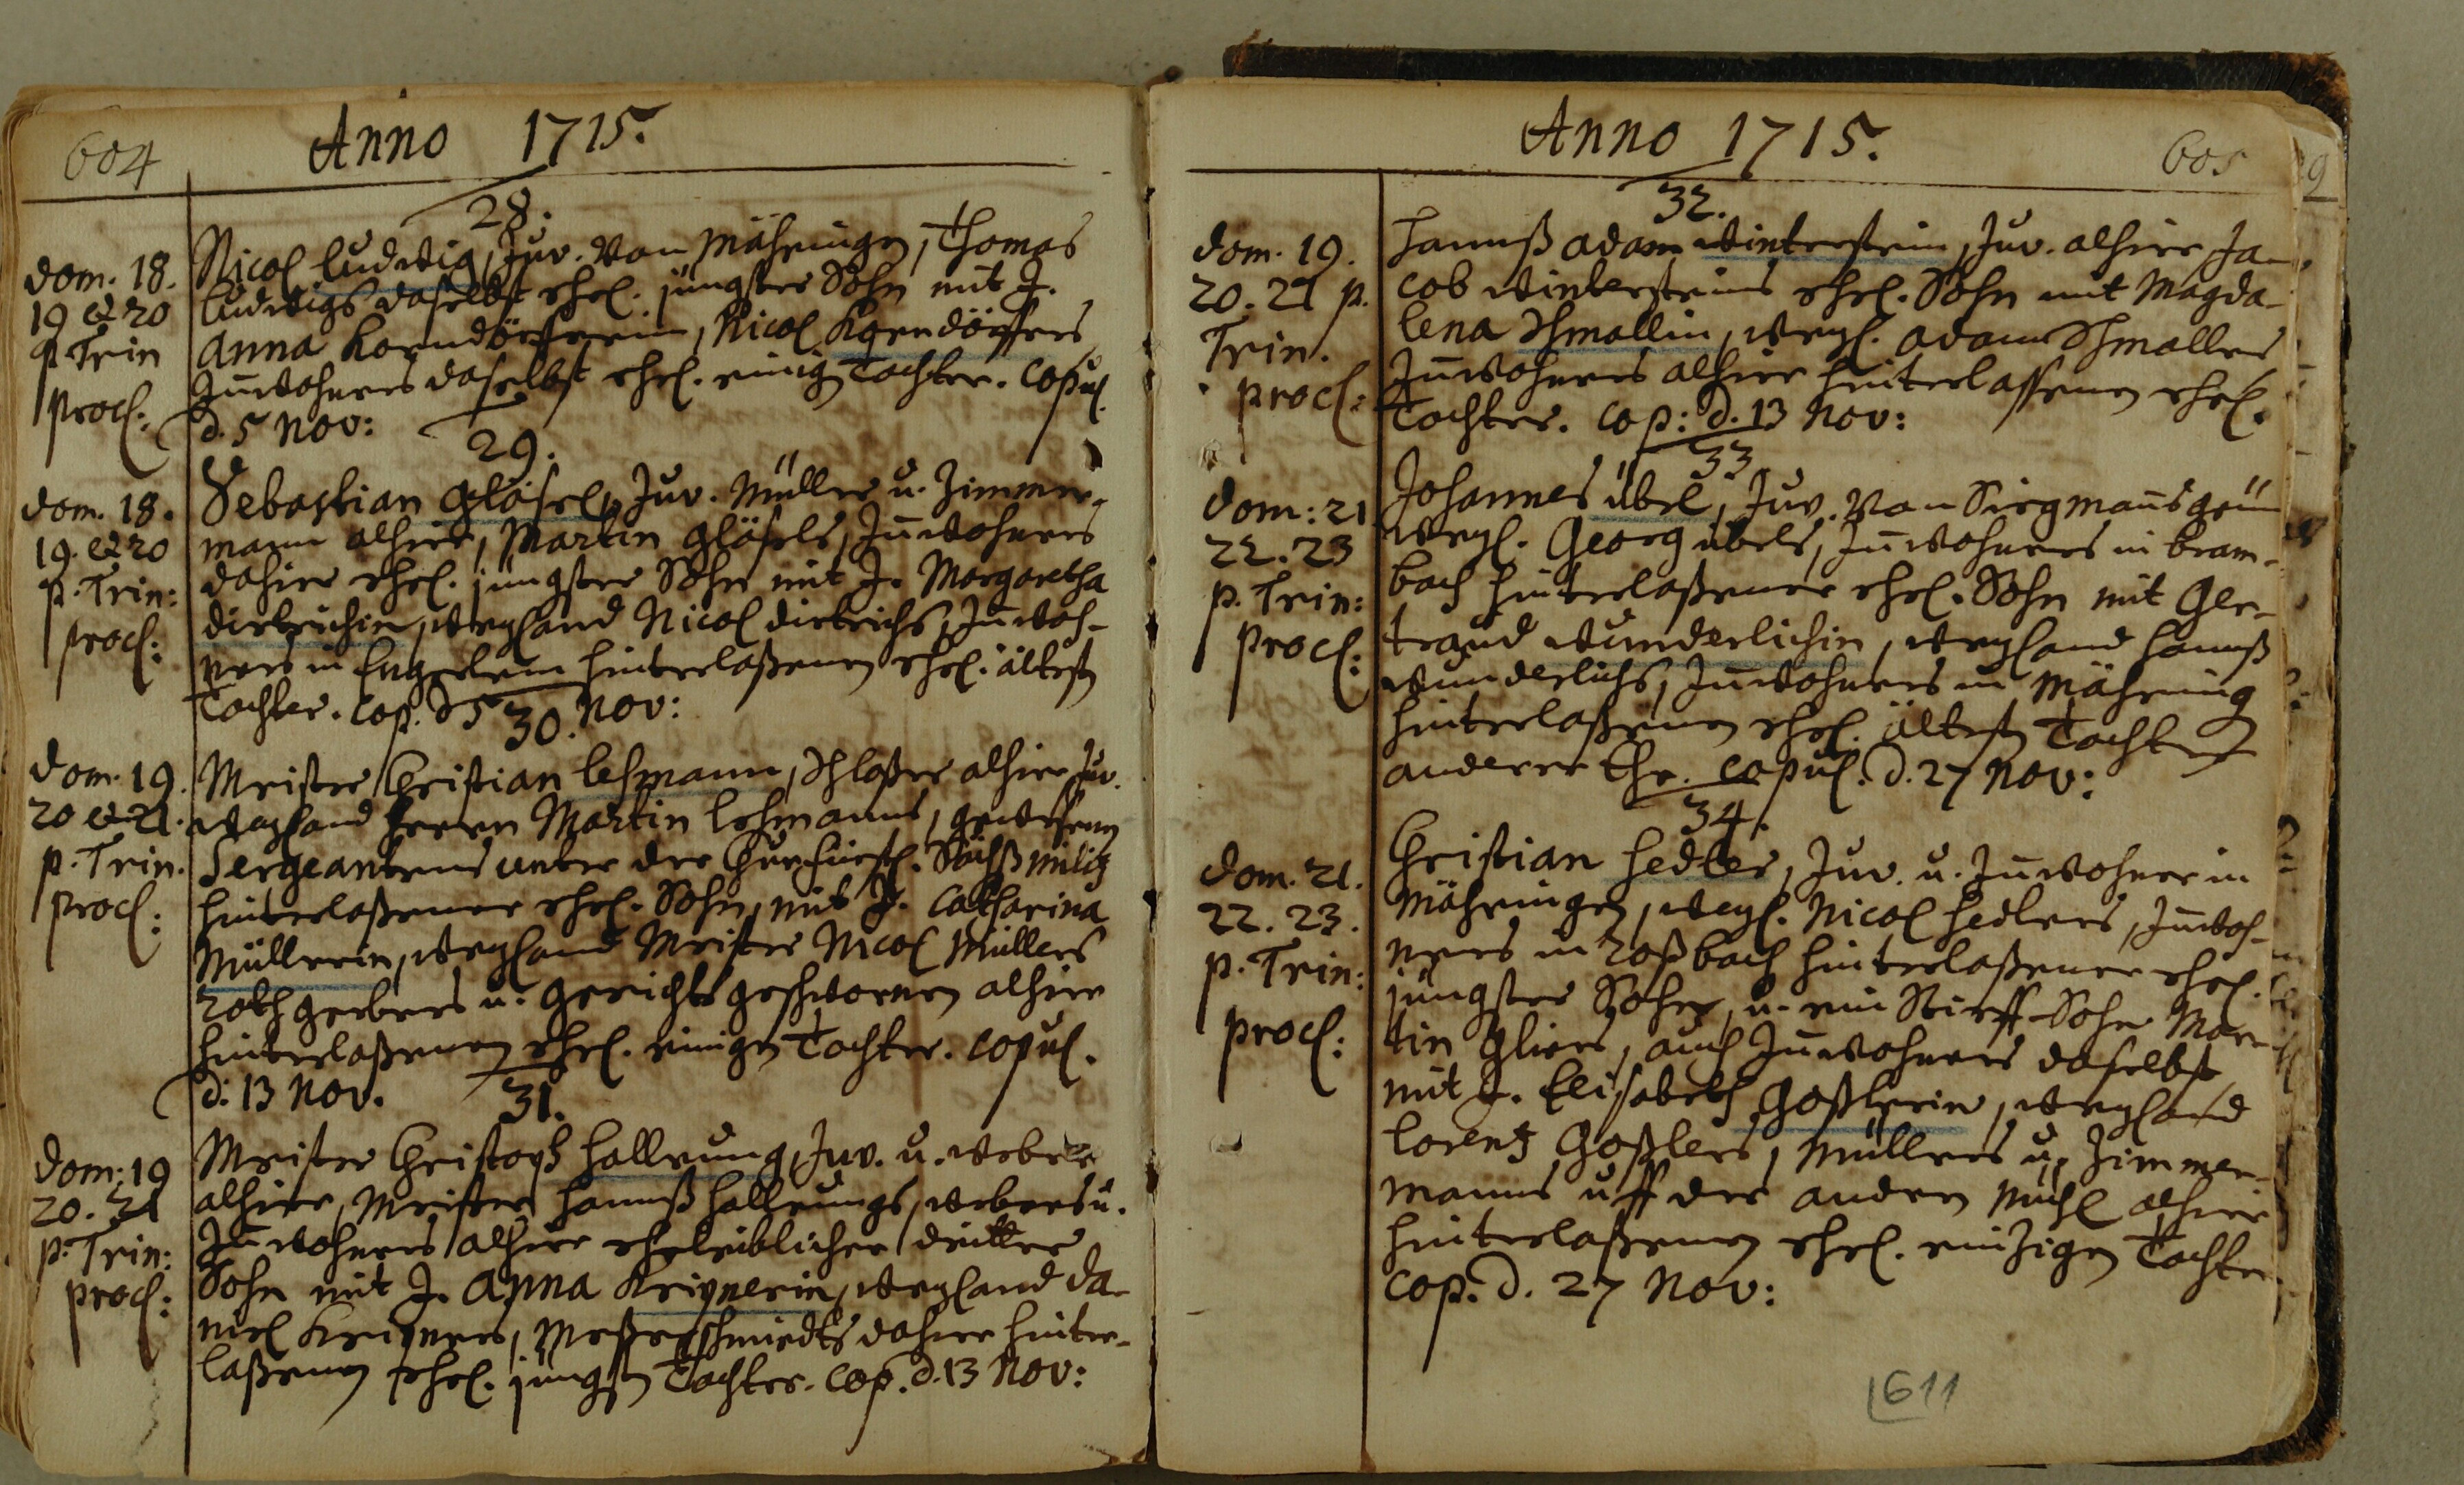 604
Anno 1715.
28.
dom. 18.
19 et 20
p Trin
procl:
Nicol Ludwig, Juv. von Mähringen, Thomas
Ludwigs daselbst ehel. jüngster Sohn mit J.
Anna Korndörfferin, Nicol Korndörffers
Inwohners daselbst ehel. einig Tochter. Copul.
d. 5 Nov:
29.
dom. 18.
19. et 20
p. Trin:
procl:
Sebastian Gläsel, Juv. Müller u. Zimmer-
mann alhier, Martin Gläsels, Inwohners
dahier ehel. jüngster Sohn mit J. Margaretha
Dietrichin, weyland Nicol Dietrichs, Inwoh-
ners in hinterlaßenen ehel. ältest
Tochter. Cop. d 5 Nov:
30.
dom. 19.
20 et 21.
p. Trin.
procl:
Meister Christian Lehmann, Schloßer alhier Juv.
weyland Herrn Martin Lehmanns, gewesenen
Sergeantens unter der Churfürstl. Sächß Militz
hinterlaßener ehel. Sohn, mit J. Catharina
Müllerin, weyland Meister Nicol Müllers
Rothgerbers u. Gerichtsgeschwornen alhier
hinterlaßenen ehel. einigen Tochter. Copul.
d. 13 Nov.
31.
dom: 19
20. 21
p. Trin:
procl:
Meister Christoph Hallrung, Juv. u. Weber
alhier, Meister Hannß Hallrungs, Webers u.
Inwohners alhier eheleiblicher dritter
Sohn mit J. Anna Kriynerin, weyland Da-
niel Kriyners, Meßerschmiedts dahier hinter-
laßenen ehel. jüngsten Tochter. Cop. d. 13 Nov:
Anno 1715.
605
32.
dom. 19.
20. 21 p.
Trin.
procl:
Hannß Adam Winterstein, Juv. alhier Ja-
cob Wintersteins ehel. Sohn mit Magda-
lena Schmallin, weyl. Adam Schmallers
Inwohners alhier hinterlassenen ehel.
Tochter. Cop: d. 13 Nov:
33
dom: 21
22. 23
p. Trin:
procl:
Johannes Übel, Juv. von Siegmansgrün
weyl. Georg Übels, Inwohners in Bram-
bach hinterlaßener ehel. Sohn mit Ger-
traud Wunderlichin, weyland Hannß
Wunderlichs, Inwohners in Mähring
hinterlaßenen ehel. ältesten Tochter
anderer Ehe. Copul. d. 27 Nov:
34.
dom. 21.
22. 23.
p. Trin:
procl:
Christian Hedler, Juv. u. Inwohner in
Mähringen, weyl. Nicol Hedlers, Inwoh-
ners in Roßbach hinterlaßener ehel.
jüngster Sohn, u. ein Stieff-Sohn Mar-
tin Gliers, auch Inwohners daselbst
mit J. Elisabeth Goßlerin, weyland
Lorentz Goßlers, Müllers u. Zimmer-
manns uff der andern Mühl alhier
hinterlaßenen ehel. einzigen Tochter
Cop. d. 27 Nov:
611